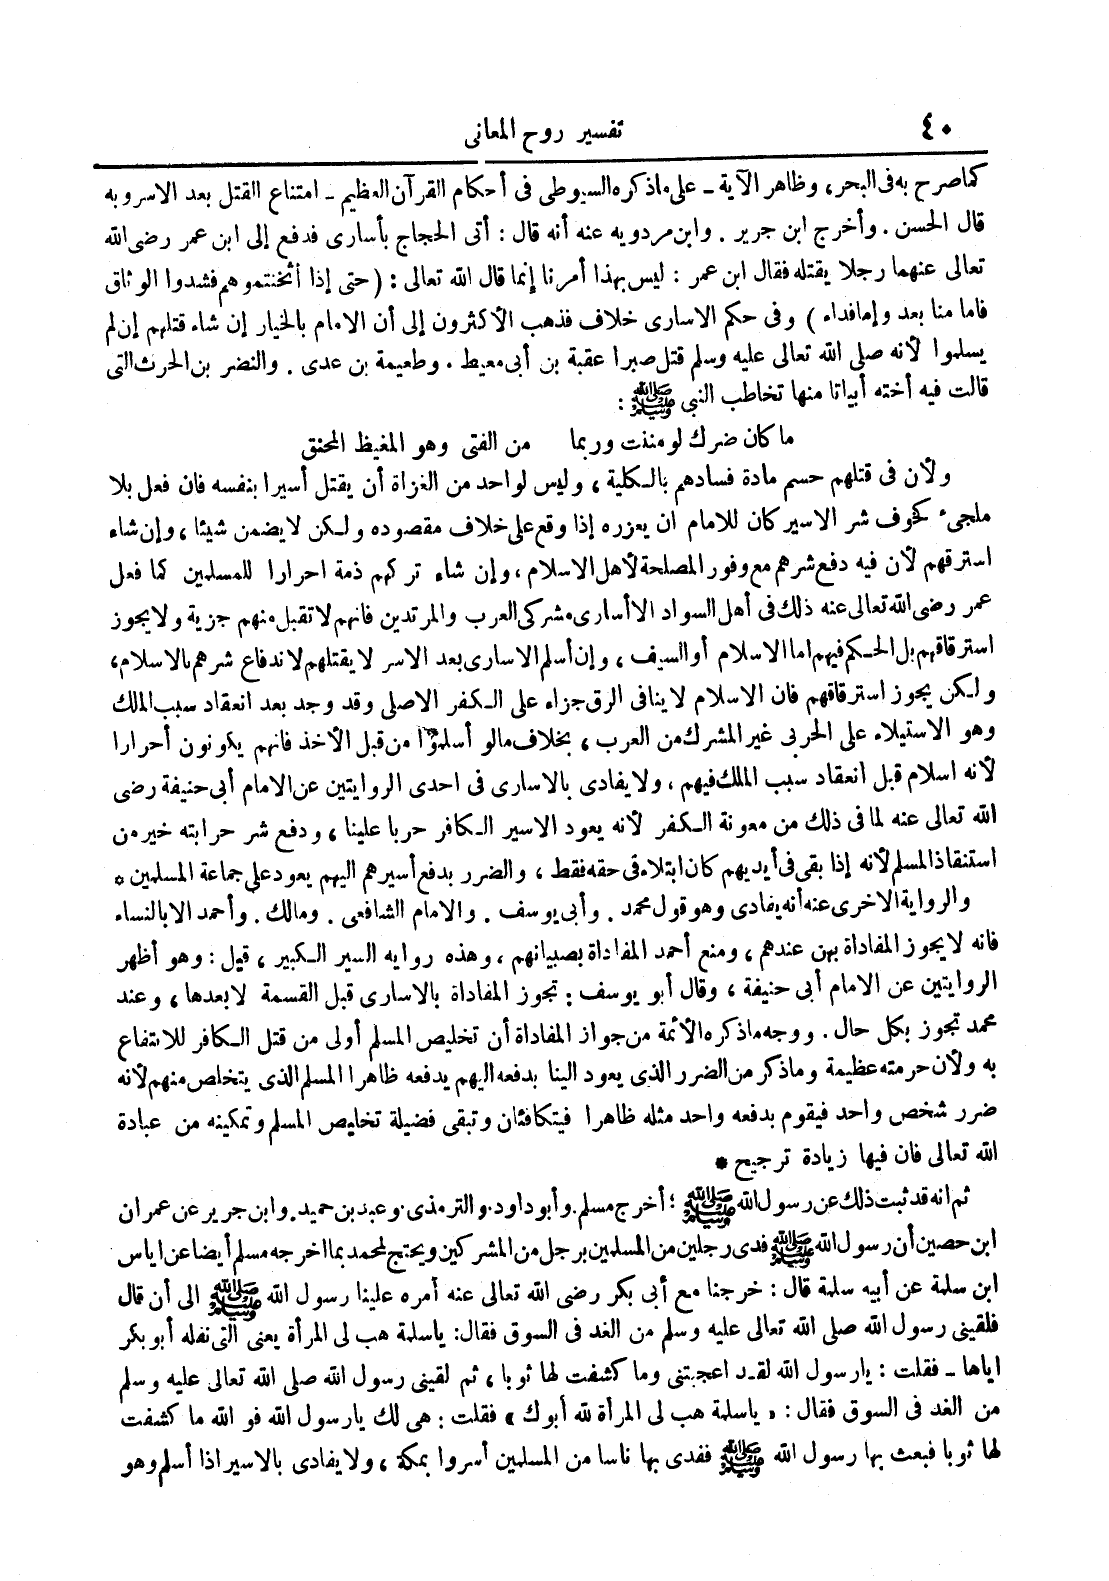 ٤٠
تفسير روح المعانى
كما صرح به فى البحر، وظاهر الآية ـ على ماذكره السيوطى فى أحكام القرآن العظيم ـ امتناع القتل بعد الاسر وبه
قال الحسن . وأخرج ابن جرير . وابن مردويه عنه أنه قال : أتى الحجاج بأسارى فدفع إلى ابن عمر رضى الله
تعالى عنهما رجلا يقتله فقال ابن عمر : ليس بهذا أمرنا إنما قال الله تعالى : ( حتى إذا أثخنتموهم فشدوا الوثاق
فاما منا بعد وإما فداء ) وفى حكم الاسارى خلاف فذهب الأكثرون إلى أن الامام بالخيار إن شاء قتلهم إن لم
يسلموا لأنه صلى الله تعالى عليه وسلم قتل صبرا عقبة بن أبى معيط . وطعيمة بن عدى . والنضر بن الحرث التى
قالت فيه أخته أبياتا منها تخاطب النبى ﷺ :
ما كان ضرك لو مننت وربما من الفتى وهو المغيظ المحنق
ولأن فى قتلهم حسم مادة فسادهم بالكلية ، وليس لواحد من الغزاة أن يقتل أسيرا بنفسه فان فعل بلا
ملجىء كخوف شر الاسير كان للامام ان يعزره إذا وقع على خلاف مقصوده ولكن لايضمن شيئا ، وإن شاء
استرقهم لأن فيه دفع شرهم مع وفور المصلحة لأهل الاسلام ، وإن شاء تركهم ذمة احرارا للمسلمين كما فعل
عمر رضى الله تعالى عنه ذلك فى أهل السواد الا أسارى مشركى العرب والمرتدين فانهم لاتقبل منهم جزية ولا يجوز
استرقاقهم بل الحكم فيهم اما الاسلام أو السيف ، وإن أسلم الاسارى بعد الاسر لا يقتلهم لاندفاع شرهم بالاسلام ،
ولكن يجوز استرقاقهم فان الاسلام لاينافى الرق جزاء على الكفر الاصلى وقد وجد بعد انعقاد سبب الملك
وهو الاستيلاء على الحربى غير المشرك من العرب ، بخلاف مالو أسلموا من قبل الأخذ فانهم يكونون أحرارا
لأنه اسلام قبل انعقاد سبب الملك فيهم ، ولا يفادى بالاسارى فى احدى الروايتين عن الامام أبى حنيفة رضى
الله تعالى عنه لما فى ذلك من معونة الكفر لأنه يعود الاسير الكافر حربا علينا ، ودفع شر حرابته خير من
استنقاذ المسلم لأنه إذا بقى فى أيديهم كان ابتلاء فى حقه فقط ، والضرر بدفع أسيرهم اليهم يعود على جماعة المسلمين *
والرواية الاخرى عنه أنه يفادى وهو قول محمد . وأبى يوسف . والامام الشافعى . ومالك . وأحمد الا بالنساء
فانه لا يجوز المفاداة بهن عندهم ، ومنع أحمد المفاداة بصبيانهم ، وهذه رواية السير الكبير ، قيل : وهو أظهر
الروايتين عن الامام أبى حنيفة ، وقال أبو يوسف : تجوز المفاداة بالاسارى قبل القسمة لا بعدها ، وعند
محمد تجوز بكل حال . ووجه ماذكره الأئمة من جواز المفاداة أن تخليص المسلم أولى من قتل الكافر للانتفاع
به ولأن حرمته عظيمة وماذكر من الضرر الذى يعود الينا بدفعه اليهم يدفعه ظاهرا المسلم الذى يتخلص منهم لأنه
ضرر شخص واحد فيقوم بدفعه واحد مثله ظاهرا فيتكافئان وتبقى فضيلة تخليص المسلم وتمكينه من عبادة
الله تعالى فان فيها زيادة ترجيح *
ثم انه قد ثبت ذلك عن رسول الله ﷺ ؛ أخرج مسلم . وأبو داود . والترمذى . وعبد بن حميد . وابن جرير عن عمران
ابن حصين أن رسول الله ﷺ فدى رجلين من المسلمين برجل من المشركين ويحتج لمحمد بما اخرجه مسلم أيضا عن اياس
ابن سلمة عن أبيه سلمة قال : خرجنا مع أبى بكر رضى الله تعالى عنه أمره علينا رسول الله ﷺ الى أن قال
فلقينى رسول الله صلى الله تعالى عليه وسلم من الغد فى السوق فقال: ياسلمة هب لى المرأة يعنى التى نفله أبو بكر
اياها ـ فقلت : يارسول الله لقد اعجبتنى وما كشفت لها ثوبا ، ثم لقينى رسول الله صلى الله تعالى عليه وسلم
من الغد فى السوق فقال : « ياسلمة هب لى المرأة لله أبوك » فقلت : هى لك يارسول الله فو الله ما كشفت
لها ثوبا فبعث بها رسول الله ﷺ ففدى بها ناسا من المسلمين أسروا بمكة ، ولا يفادى بالاسير اذا أسلم وهو